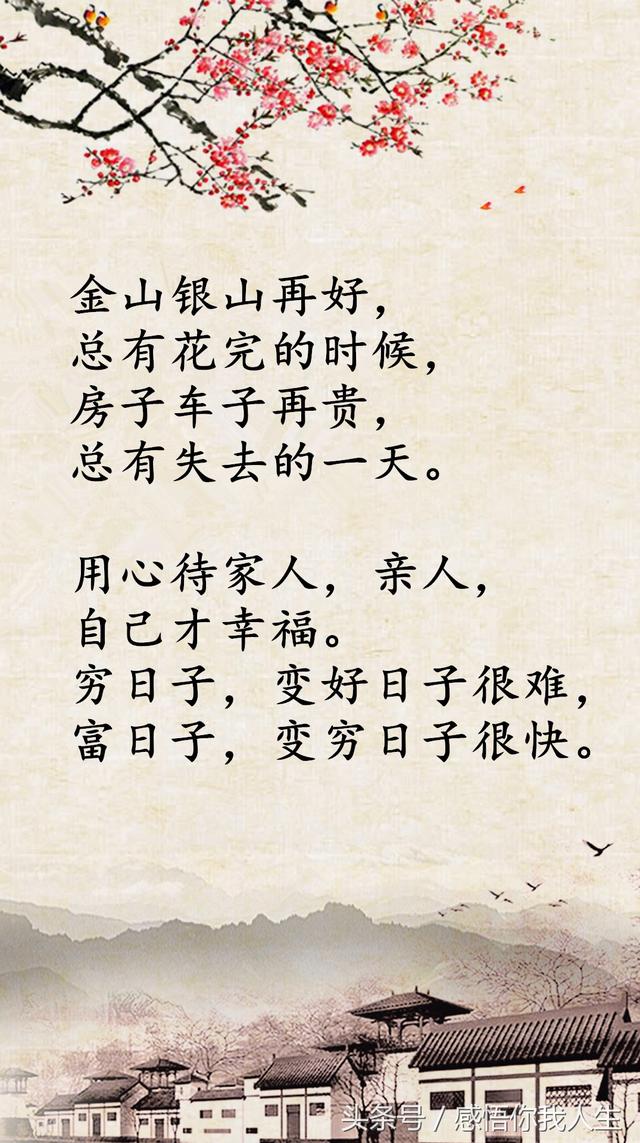 金山银山再好，
总有花完的时候，
房子车子再贵，
总有失去的一天。
用心待家人，亲人，
自己才幸福。
穷日子，变好日子很难，
富日子，变穷日子很快。
头条号 / 感悟你我人生